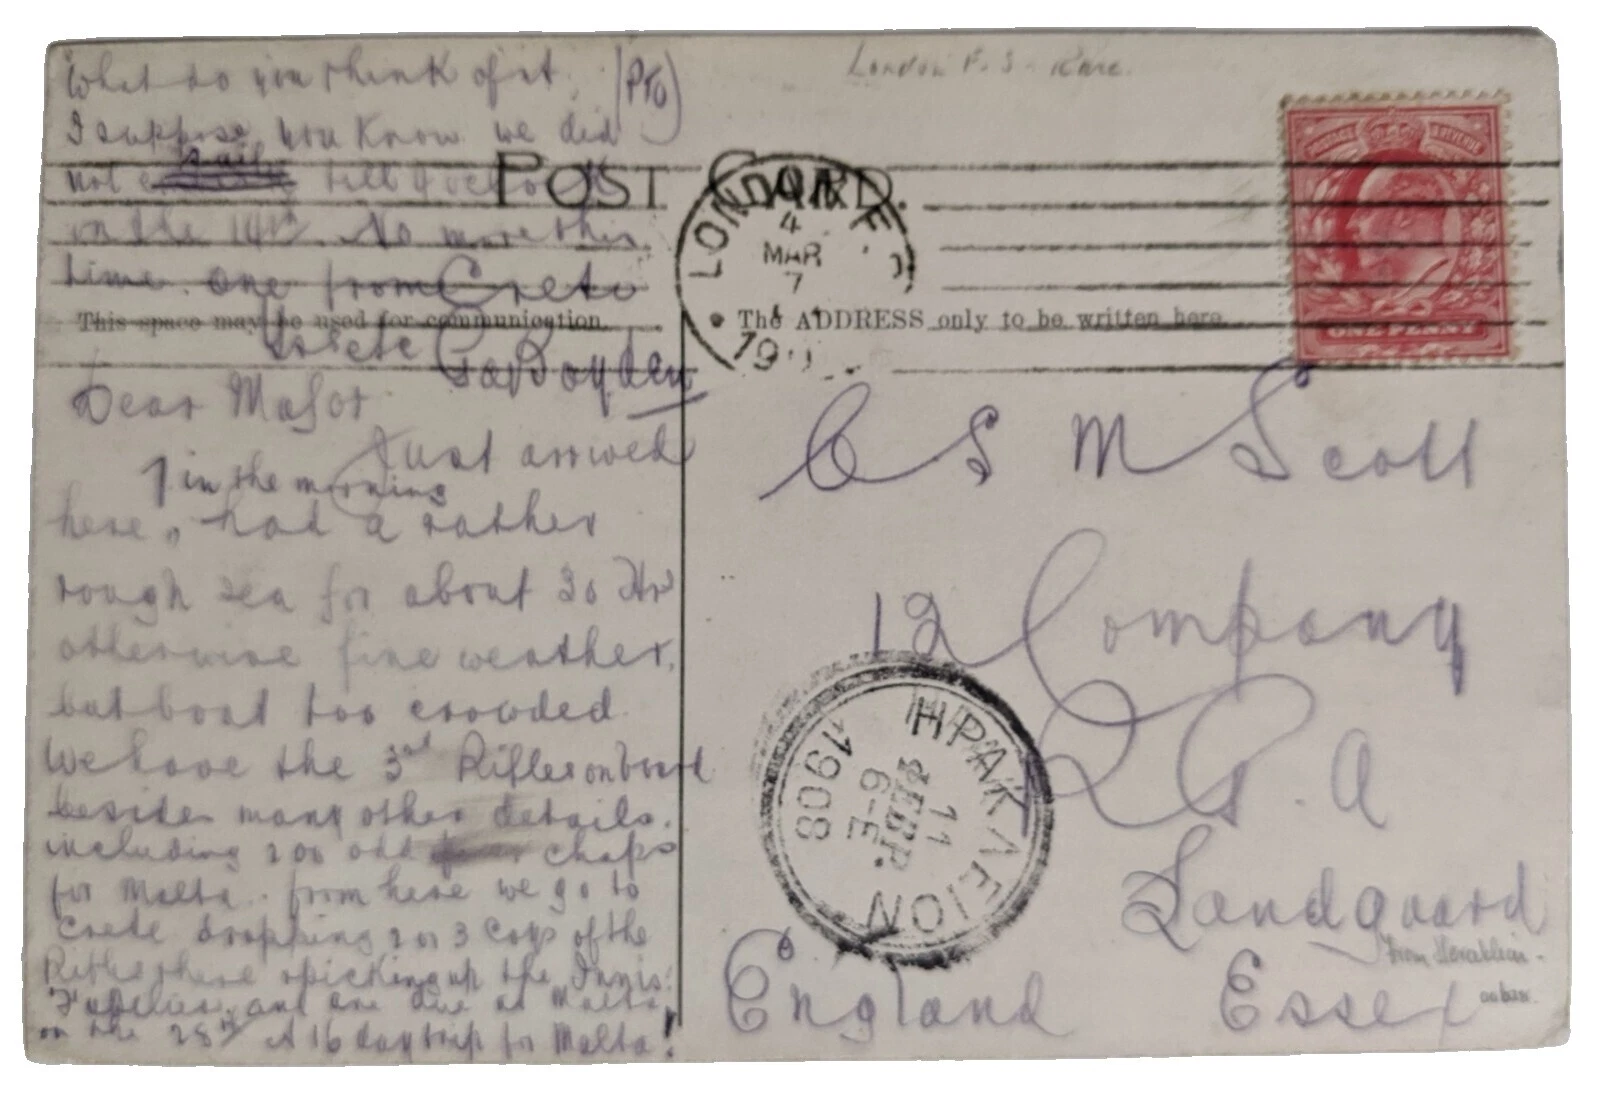 What do you think of it. (PTO)
I suppose you know we did
not sail till 4 oclock
on the 14th. No more this
time. one from Crete
to Crete
GaBoyden
London F. S - Rare.
POST CARD.
LONDON F.S
4
MAR
7
190
POSTAGE & REVENUE
ONE PENNY
This space may be used for communication.
The ADDRESS only to be written here.
Dear Major
Just arrived
in the morning
here, had a rather
rough sea for about 30 Hrs
otherwise fine weather.
but boat too crowded
We have the 3rd Rifles on board
besides many other details.
including 200 odd chaps
for Malta. from here we go to
Crete dropping 2 or 3 Coys of the
Rifles there & picking up the Innis:
Fusiliers and are due at Malta
on the 28th A 16 day trip for Malta!
C S M Scott
12 Company
R G. A
Landguard
England Essex
from Heraklion.
ΗΡΑΚΛΕΙΟΝ
11
ΦΕΒΡ.
6-Ε
1908